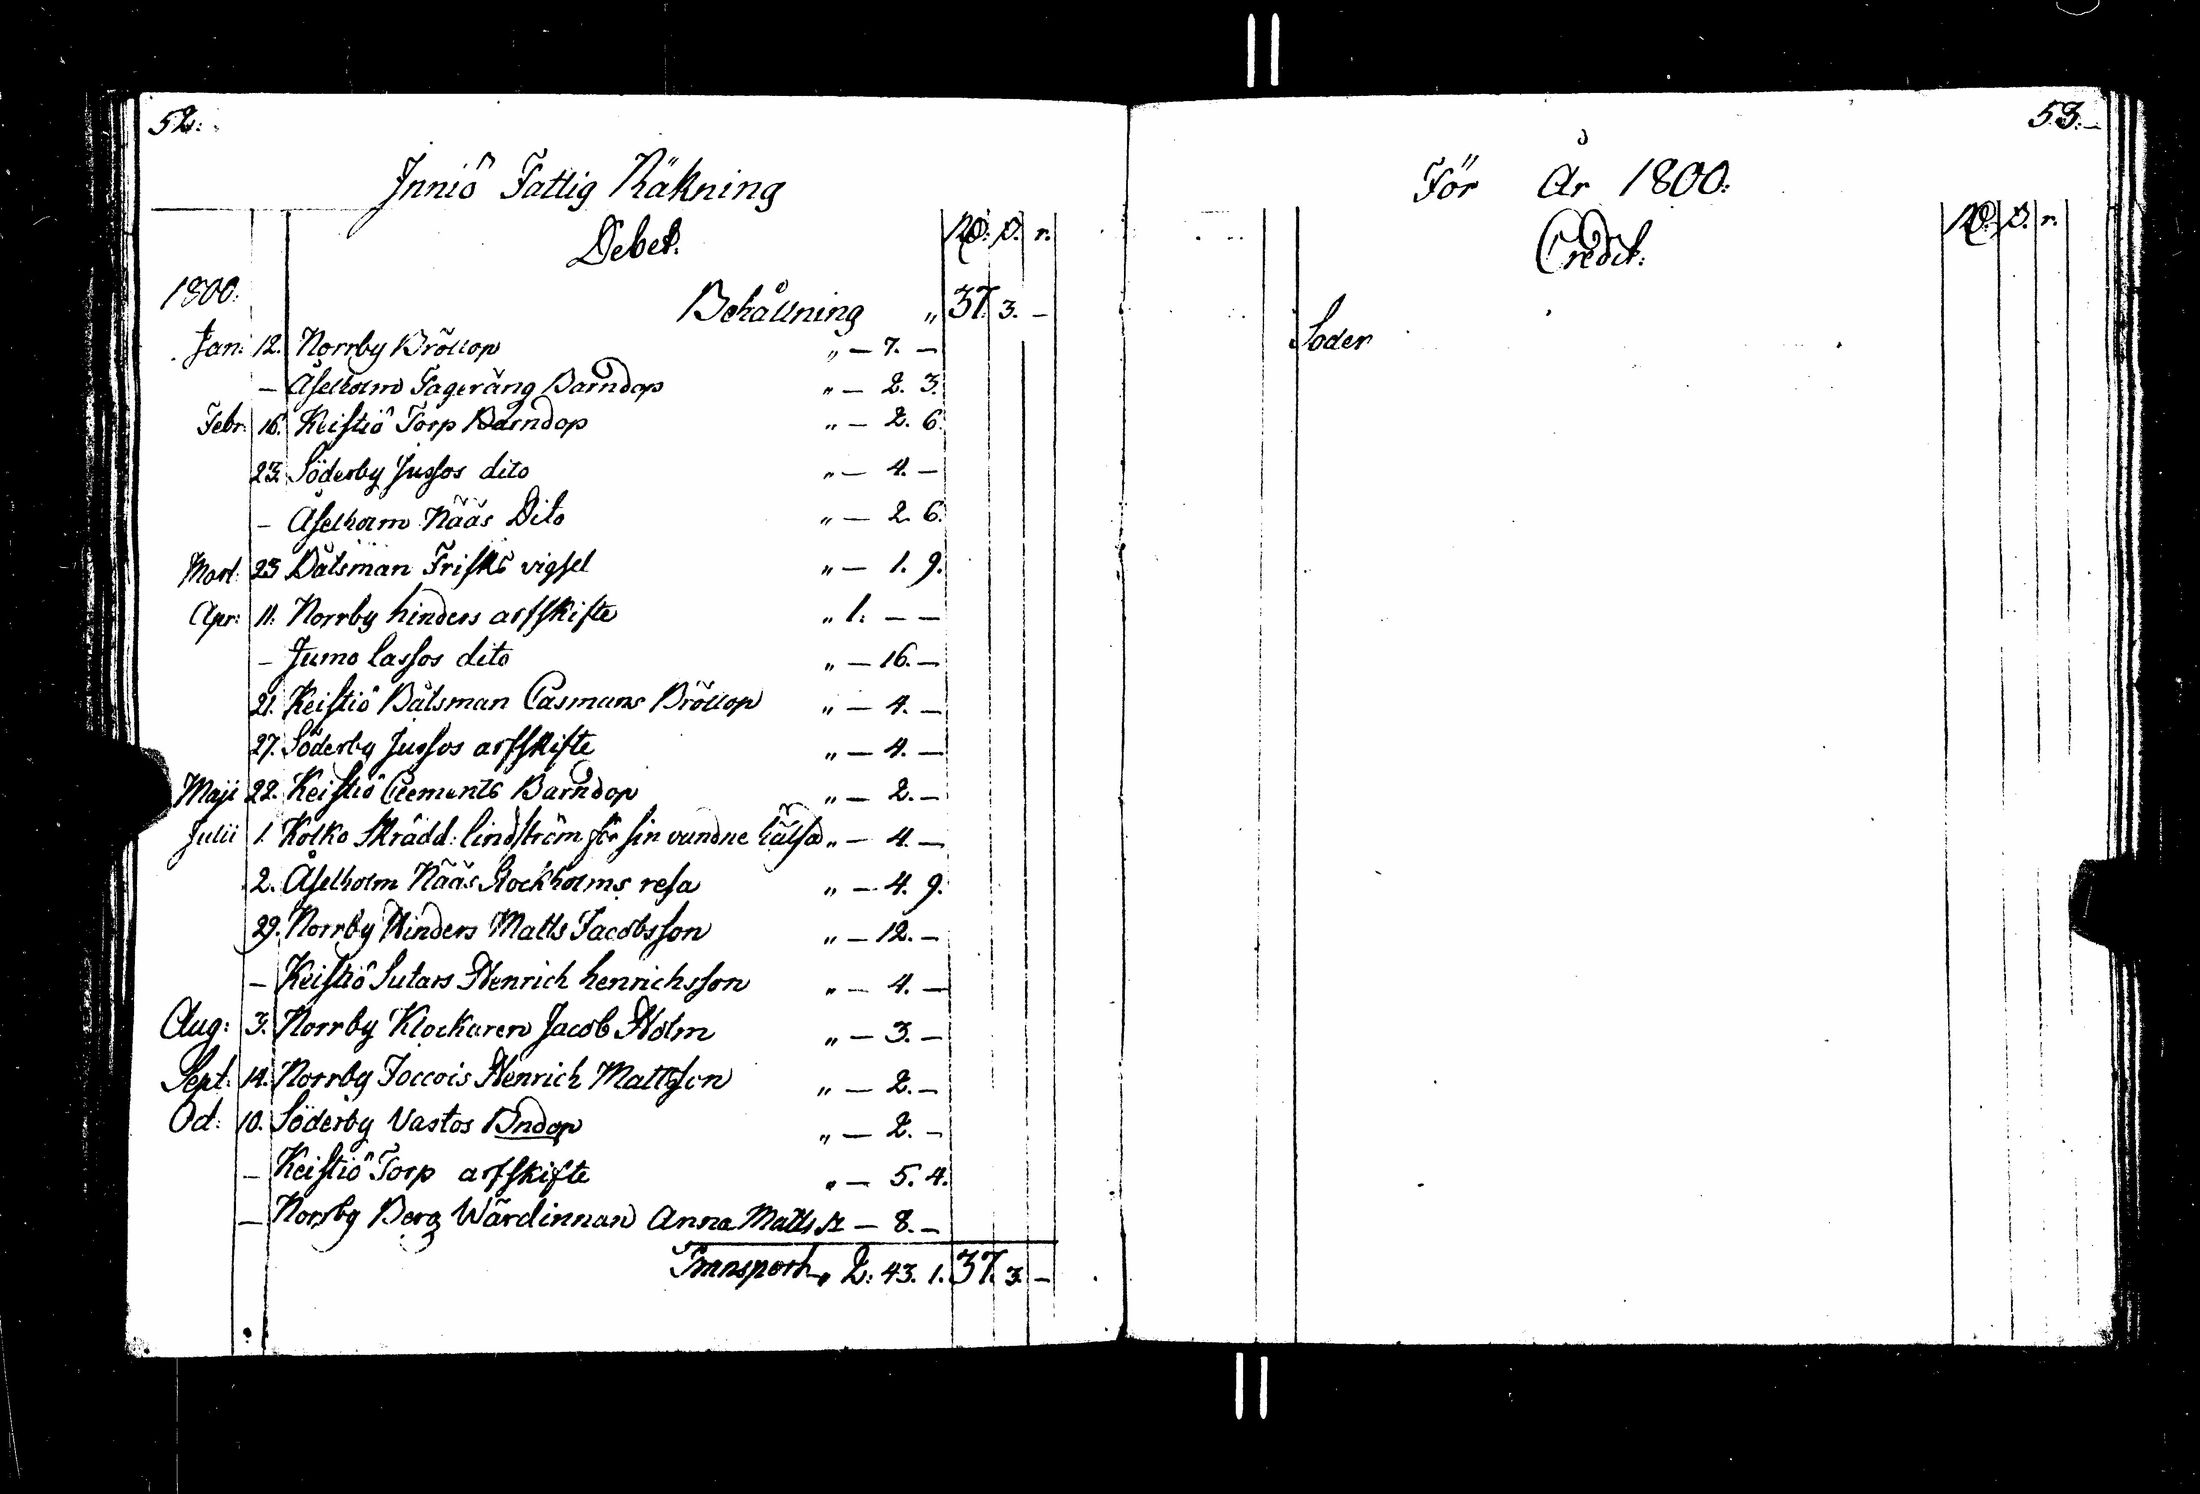 52.
Jnniö Fattig Räkning
Debet.
Rd. s. r.
1800. Behållning " 37. 3. –
Jan: 12. Norrby Bröllop " – 7. –
– Åselholm Fageräng Barndop " – 2. 3.
Febr: 16. Keistiö Torp Barndop " – 2. 6.
23. Söderby Jussos dito " – 4. –
– Åselholm Nääs Dito " – 2. 6.
Mart: 23 Båtsman Frisks vigsel " – 1. 9.
Apr: 11. Norrby hinders arfskifte " 1: – –
– Jumo Lassos dito " – 16. –
21. Keistiö Båtsman Casmans Bröllop " – 4. –
27. Söderby Jussos arfskifte " – 4. –
Maji 22. Keistiö Clements Barndop " – 2. –
Julii 1. Kolko Skrädd: lindström för sin vundne hälsa " – 4. –
2. Åselholm Nääs Stockholms resa " – 4. 9.
29. Norrby Hinders Matts Jacobsson " – 12. –
– Keistiö Sutars Henrich henrichsson " – 4. –
Aug: 3. Norrby Klockaren Jacob Holm " – 3. –
Sept: 14. Norrby Joccois Henrich Mattsson " – 2. –
Oct: 10. Söderby Vastos Bndop " – 2. –
– Keistiö Torp arfskifte " – 5. 4.
– Norrby Berg Wärdinnan Anna Matts – 8. –
Transport " 2: 43. 1. 37. 3. –
53.
För År 1800.
Credit.
Rd. s. r.
Söder